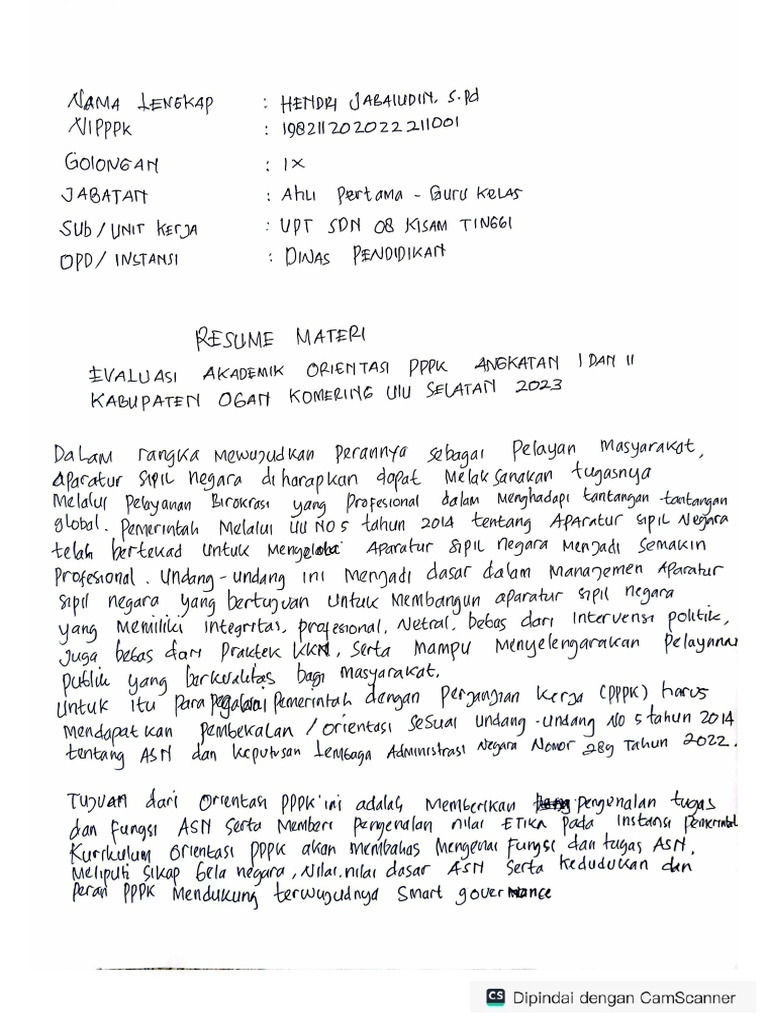 NAMA LENGKAP : HENDRI JABALUDIN, S.Pd
NIPPPK : 198211202022211001
GOLONGAN : IX
JABATAN : Ahli Pertama - Guru Kelas
SUB / UNIT KERJA : UPT SDN 08 KISAM TINGGI
OPD / INSTANSI : DINAS PENDIDIKAN
RESUME MATERI
EVALUASI AKADEMIK ORIENTASI PPPK ANGKATAN I DAN II
KABUPATEN OGAN KOMERING ULU SELATAN 2023
Dalam rangka mewujudkan perannya sebagai Pelayan Masyarakat,
Aparatur sipil negara diharapkan dapat Melaksanakan tugasnya
Melalui Pelayanan Birokrasi yang Profesional dalam Menghadapi tantangan-tantangan
global. Pemerintah Melalui UU NO 5 tahun 2014 tentang Aparatur sipil Negara
telah bertekad untuk Mengelola Aparatur sipil negara Menjadi Semakin
Profesional. Undang-undang ini Menjadi dasar dalam Manajemen Aparatur
sipil negara yang bertujuan untuk Membangun aparatur sipil negara
yang Memiliki integritas, profesional, Netral, bebas dari Intervensi politik,
Juga bebas dari Praktek KKN, Serta Mampu Menyelengarakan Pelaynnan
Publik yang berkualitas bagi Masyarakat.
Untuk itu Para Pemerintah dengan Perjanjian Kerja (PPPK) harus
Mendapatkan Pembekalan / orientasi Sesuai undang-undang NO 5 tahun 2014
tentang ASN dan keputusan Lembaga Administrasi Negara Nomor 289 Tahun 2022.
Tujuan dari Orientasi PPPK ini adalah Memberikan Pengenalan tugas
dan fungsi ASN Serta Memberi Pengenalan nilai ETIKA pada Instansi pemerintah
Kurikulum Orientasi PPPK akan Membahas Mengenai Fungsi dan tugas ASN,
Meliputi Sikap bela negara, Nilai-nilai dasar ASN Serta kedudukan dan
Peran PPPK Mendukung terwujudnya Smart governance
CS Dipindai dengan CamScanner